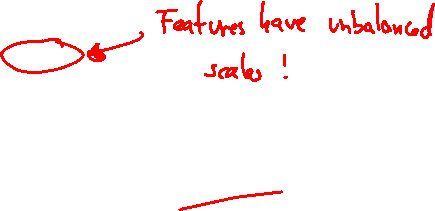 Features have unbalanced
scales !